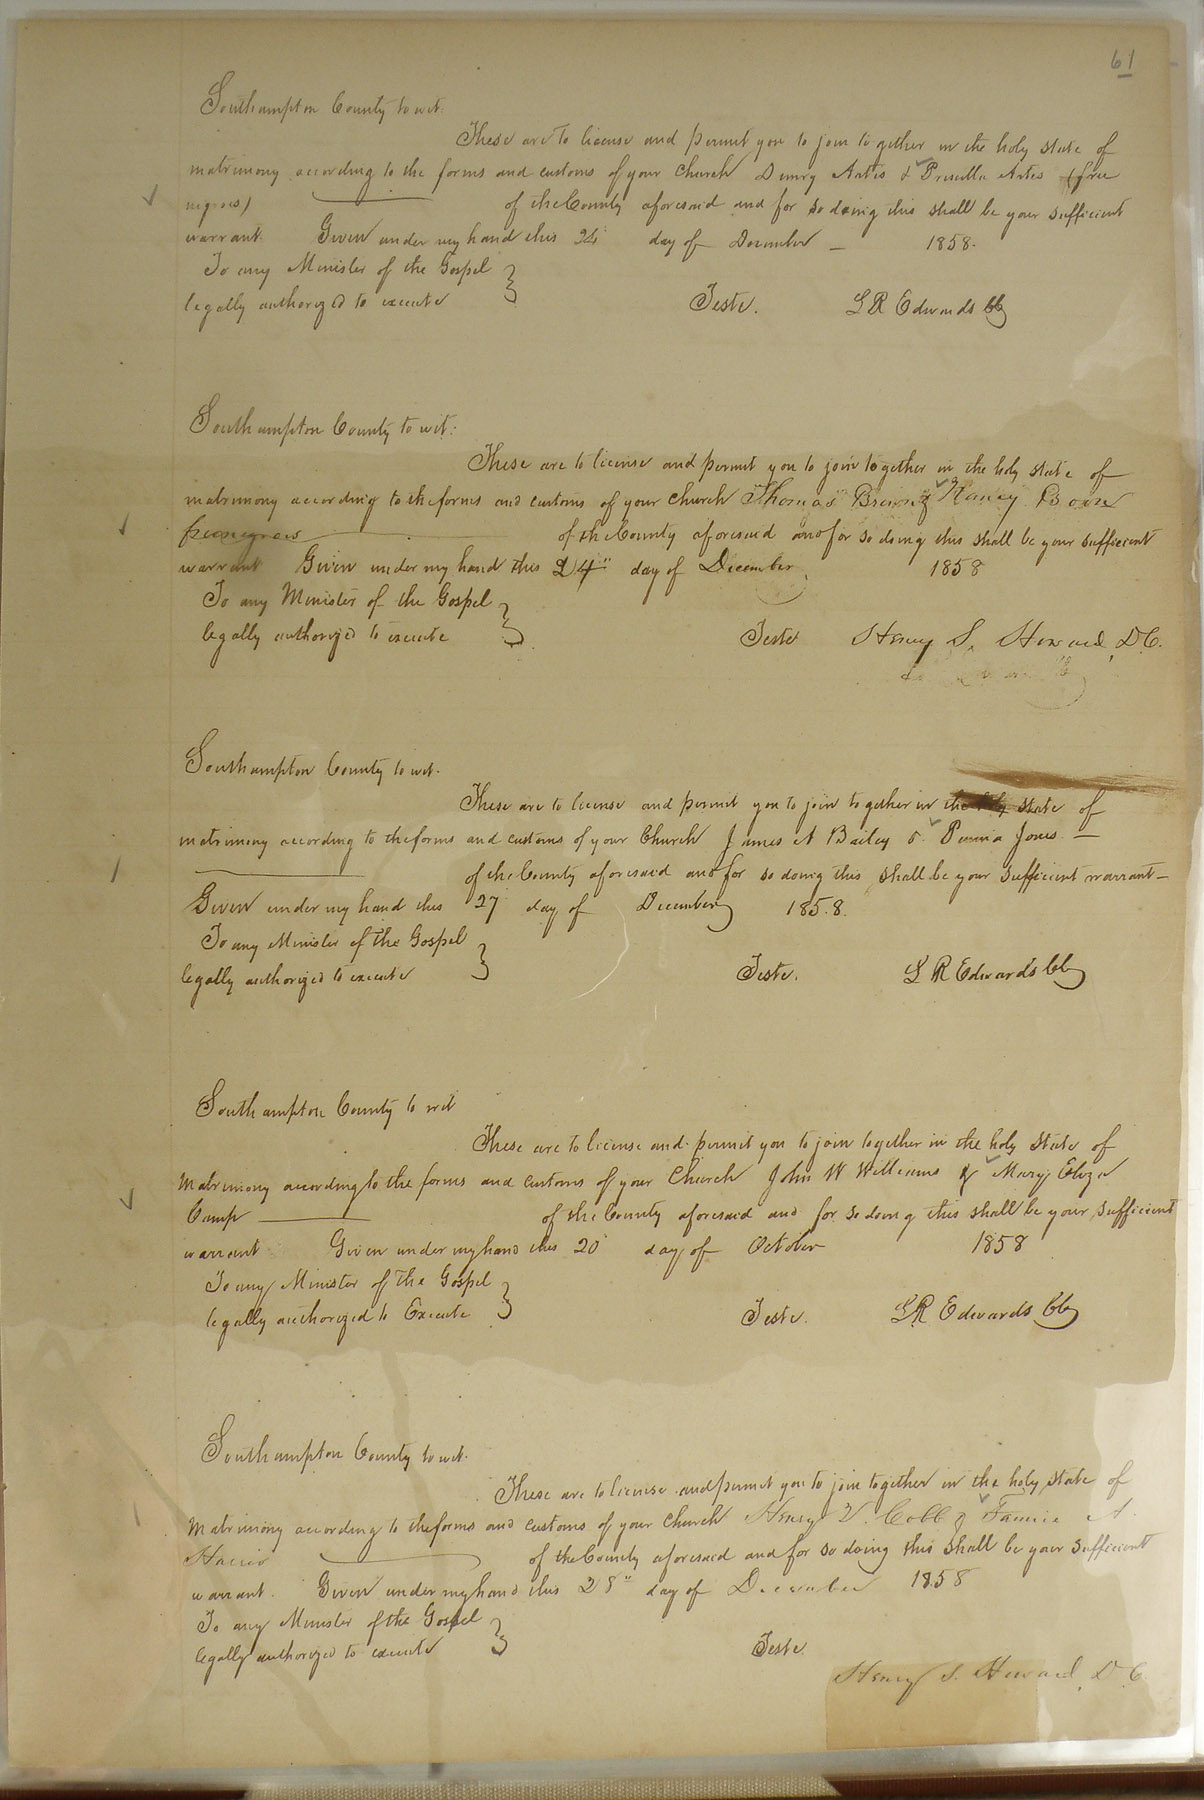 61
Southampton County to wit:
These are to license and permit you to join together in the holy state of
matrimony according to the forms and customs of your Church Artis & Priscilla Artis (free
negroes) of the County aforesaid and for so doing this shall be your sufficient
warrant. Given under my hand this 24 day of December 1858.
To any Minister of the Gospel
legally authorized to execute
Teste. L R Edwards Clk
Southampton County to wit:
These are to license and permit you to join together in the holy state of
matrimony according to the forms and customs of your Church Thomas Brown & Nancy Boon
free negroes of the County aforesaid and for so doing this shall be your sufficient
warrant Given under my hand this 24" day of December 1858
To any Minister of the Gospel
legally authorized to execute
Teste Henry S. Howard, D.C.
Southampton County to wit.
These are to license and permit you to join together in the holy state of
matrimony according to the forms and customs of your Church James A Bailey & Jones —
of the County aforesaid and for so doing this shall be your sufficient warrant —
Given under my hand this 27 day of December 1858.
To any Minister of the Gospel
legally authorized to execute
Teste. L R Edwards Clk
Southampton County to wit
These are to license and permit you to join together in the holy state of
Matrimony according to the forms and customs of your Church John W Williams & Mary Eliza
Camp of the County aforesaid and for so doing this shall be your sufficient
warrant Given under my hand this 20 day of October 1858
To any Minister of the Gospel
legally authorized to Execute
Teste. L R Edwards Clk
Southampton County to wit.
These are to license and permit you to join together in the holy state of
Matrimony according to the forms and customs of your Church Henry Cobb & Fannie A.
of the County aforesaid and for so doing this shall be your sufficient
warrant. Given under my hand this 28" day of December 1858
To any Minister of the Gospel
legally authorized to execute
Teste.
Henry S. Howard, D.C.